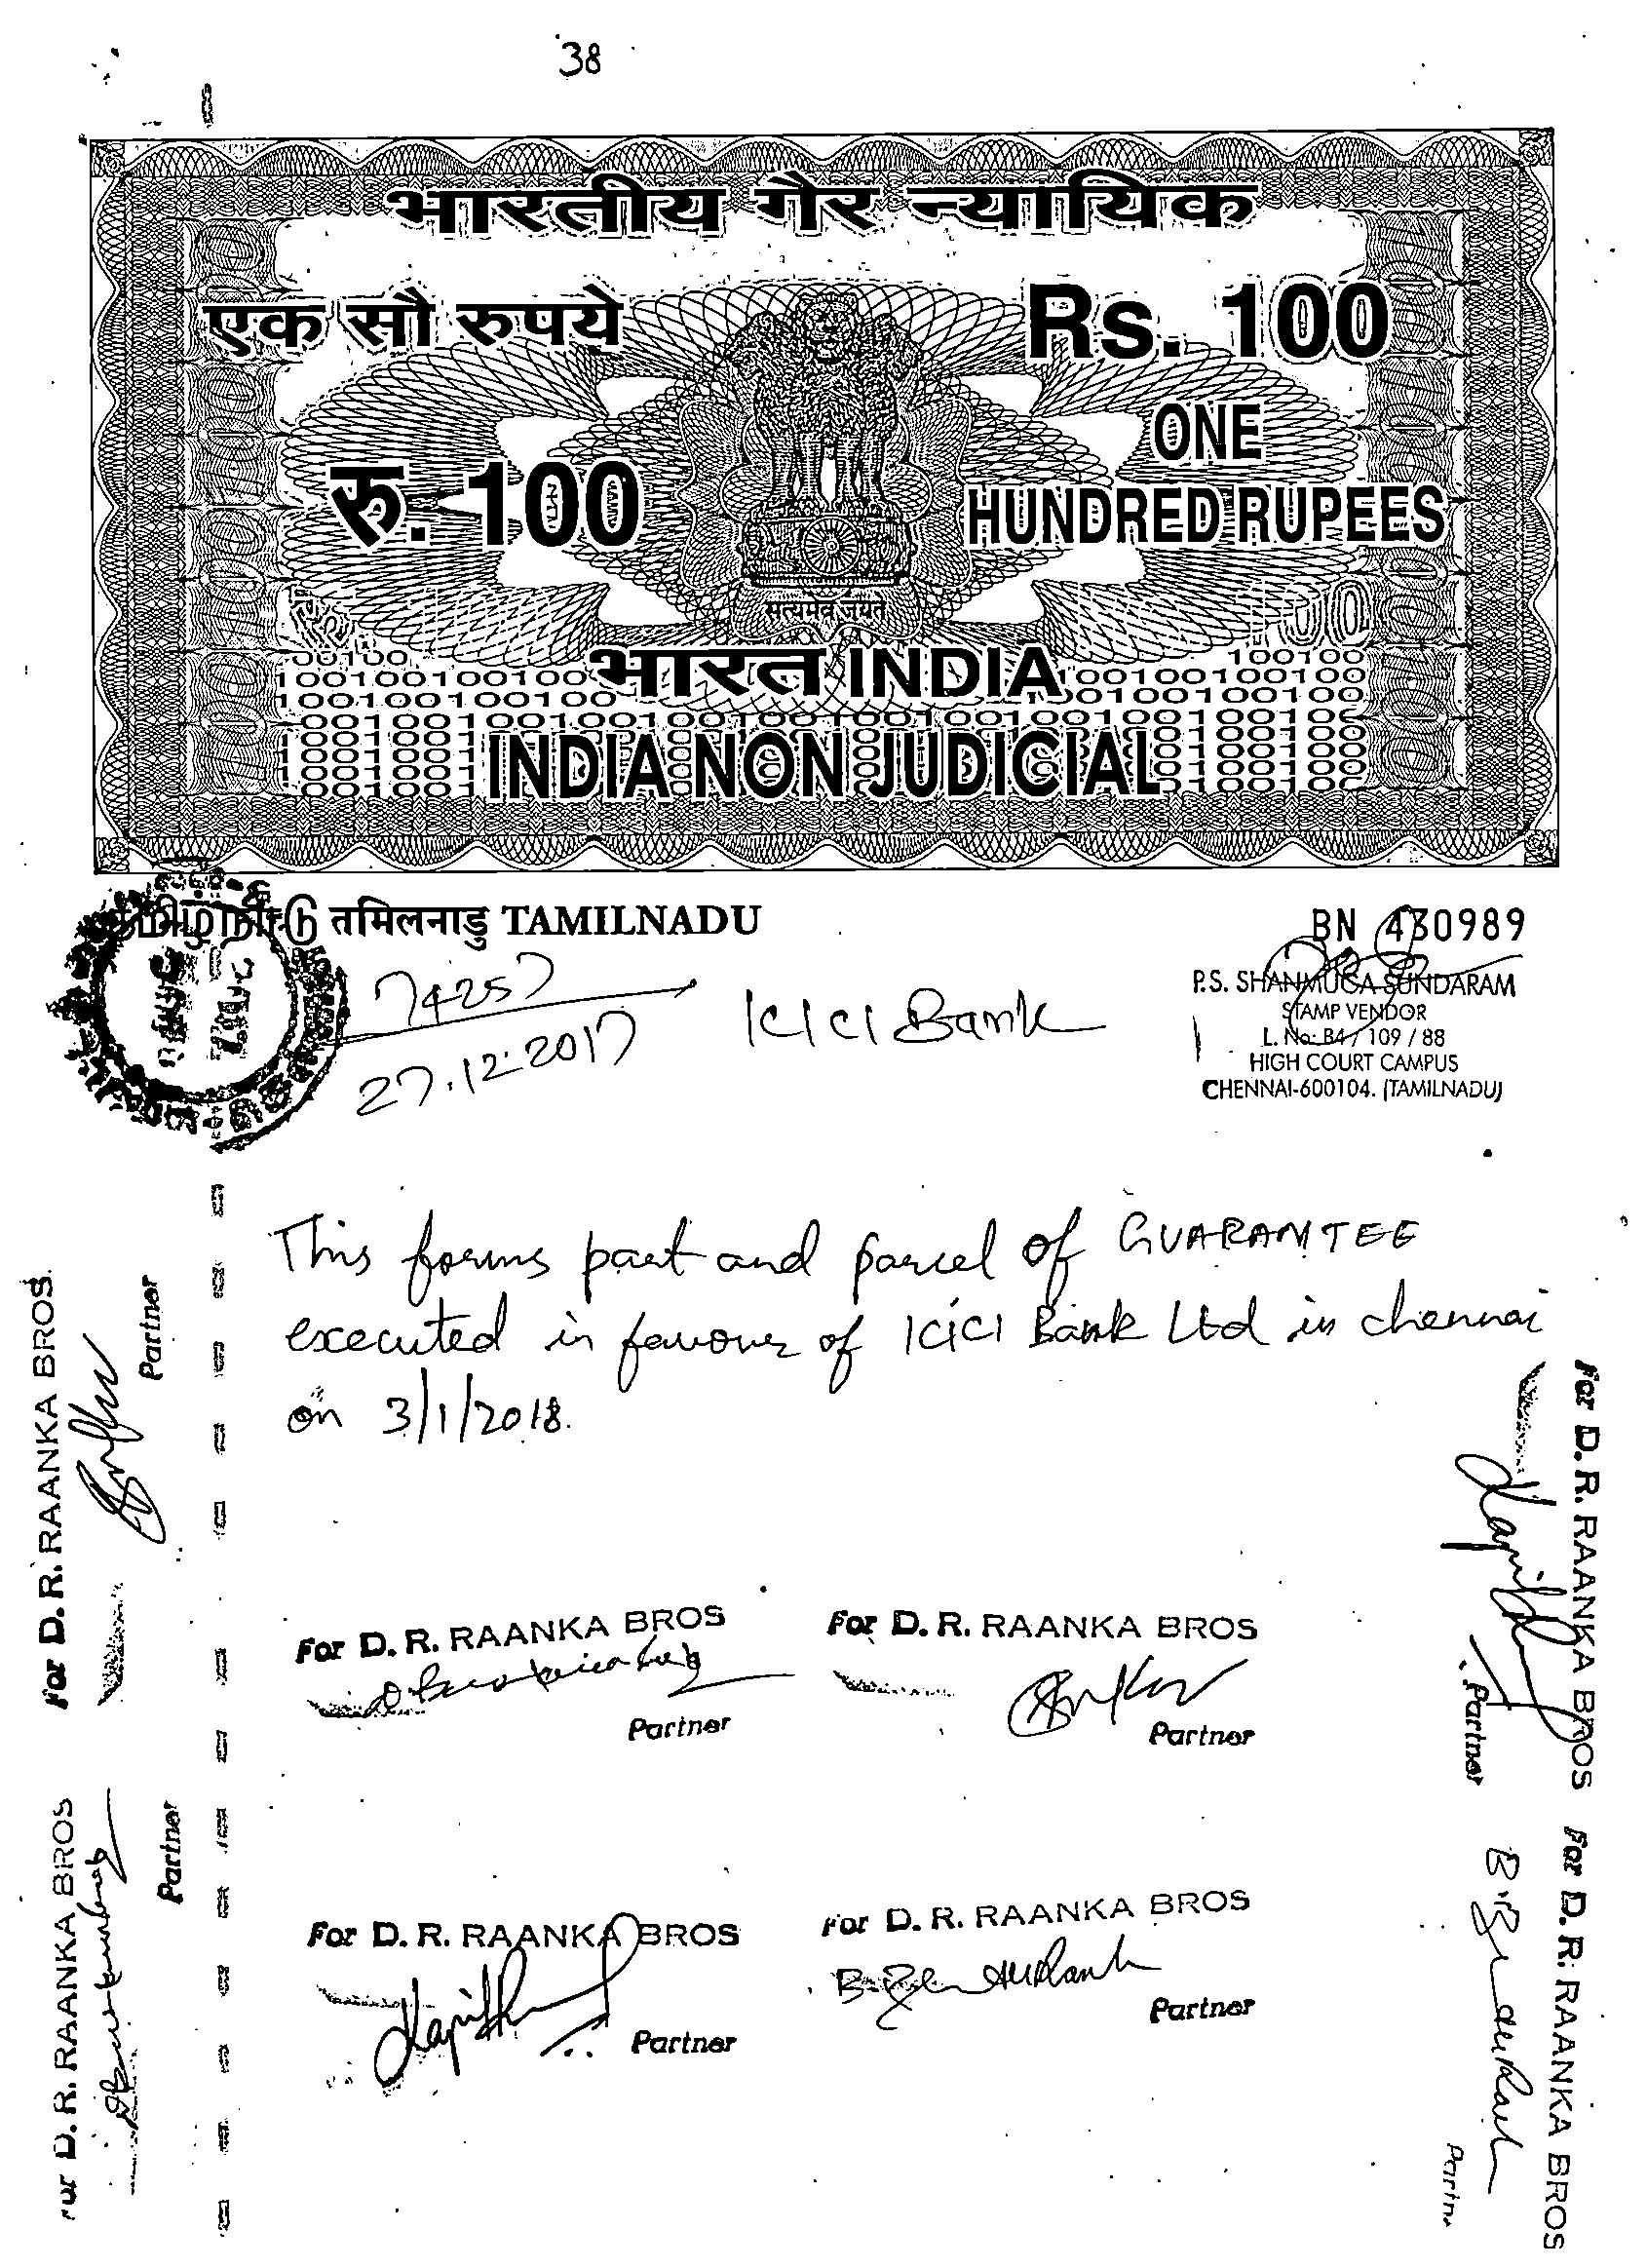 38
भारतीय गैर न्यायिक
एक सौ रुपये
Rs. 100
रु. 100
ONE
HUNDRED RUPEES
सत्यमेव जयते
भारत INDIA
INDIA NON JUDICIAL
தமிழ்நாடு तमिलनाडु TAMILNADU
BN 430989
74257
27.12.2017
ICICI Bank
P.S. SHANMUGA SUNDARAM
STAMP VENDOR
L. No: B4 / 109 / 88
HIGH COURT CAMPUS
CHENNAI-600104. (TAMILNADU)
This forms part and parcel of GUARANTEE
executed in favour of ICICI Bank Ltd in chennai
on 3/1/2018.
For D. R. RAANKA BROS
Partner
For D. R. RAANKA BROS
Partner
For D. R. RAANKA BROS
Partner
For D. R. RAANKA BROS
Partner
For D. R. RAANKA BROS.
Partner
For D. R. RAANKA BROS
Partner
For D. R. RAANKA BROS
Partner
For D. R. RAANKA BROS